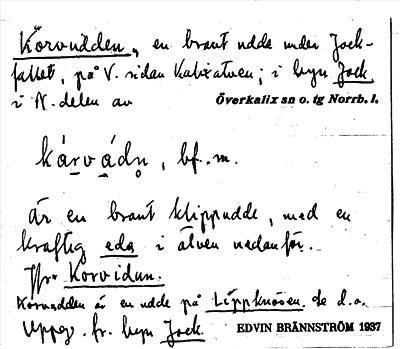 Körvudden, en brant udde nedan Jock-
fallet, på V. sidan Kalixälven; i byn Jock
i N. delen av Överkalix sn o. tg Norrb. l.
kárvádn̥, bf. m.
är en brant klippudde, med en
kraftig eda i älven nedanför.
Jfr Korvidun.
Körvudden är en udde på Läppknösen. de d.o.
Uppg. fr. byn Jock. EDVIN BRÄNNSTRÖM 1937